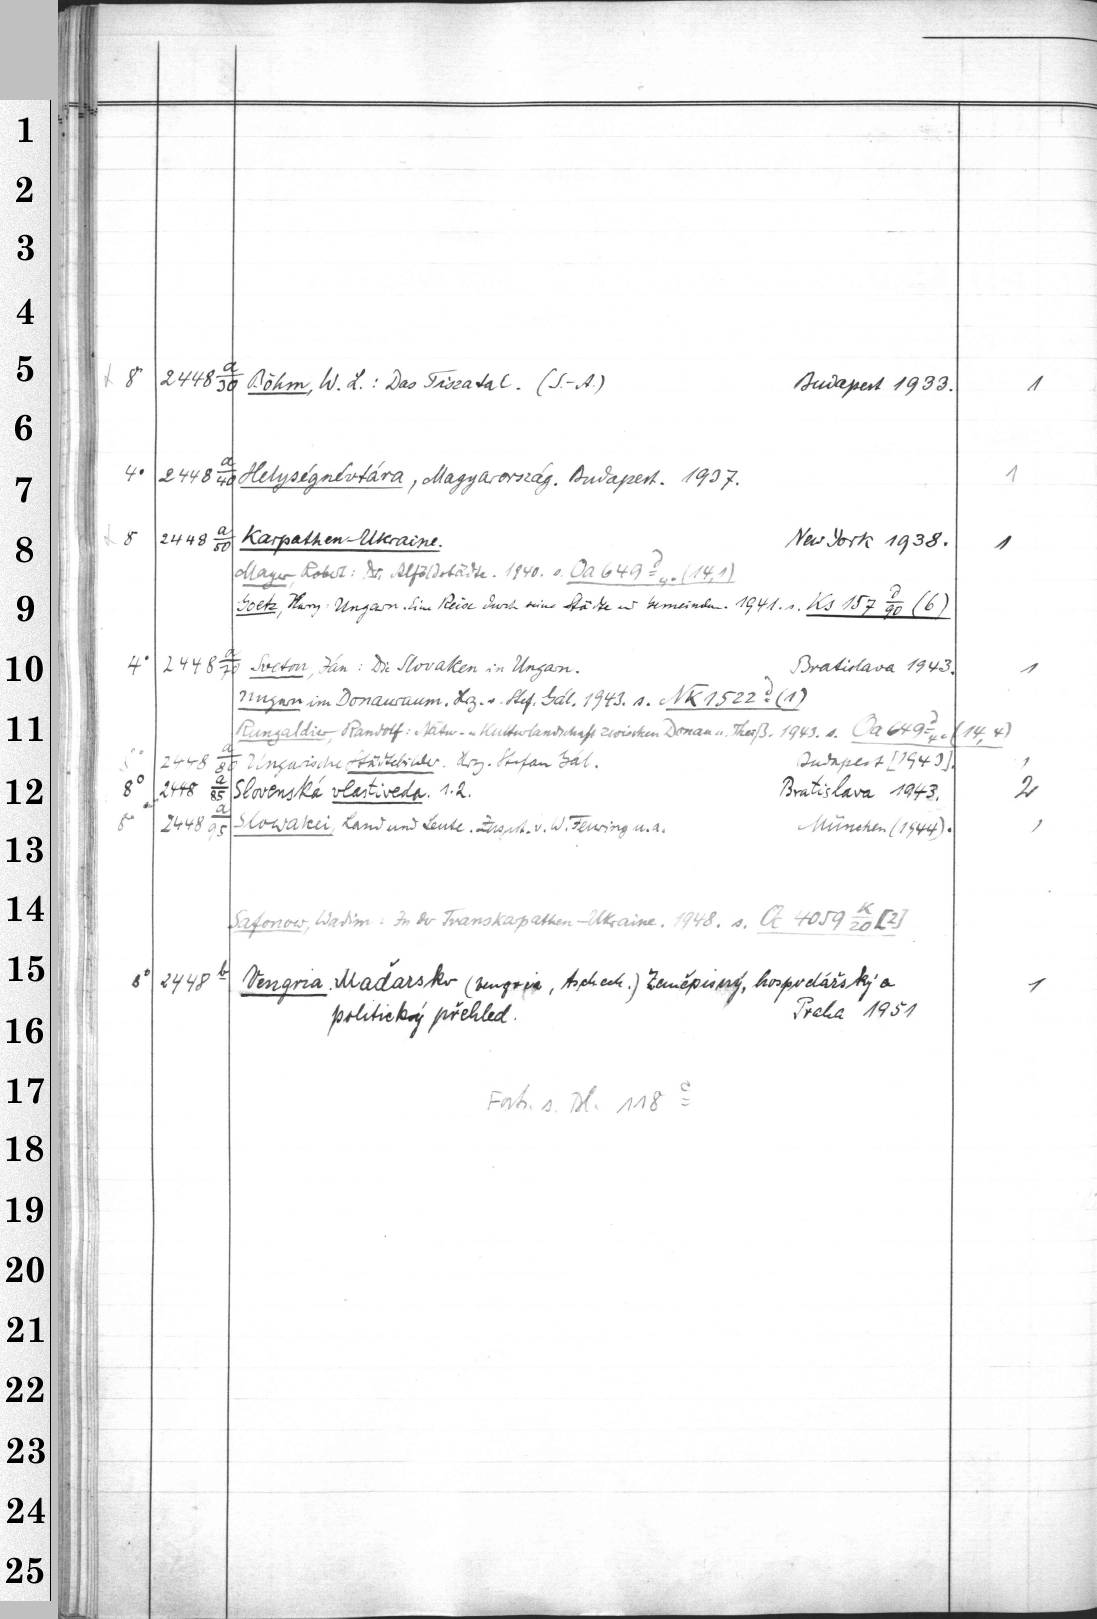 1
2
3
4
5
8° 2448 a/30 Böhm, W. L.: Das Tiszatal. (S.-A.) Budapest 1933. 1
6
4° 2448 a/40 Helységnévtára, Magyarország. Budapest. 1937. 1
7
8 2448 a/50 Karpathen-Ukraine. New York 1938. 1
8
Mayer, Robert: Die Alföldstädte. 1940. s. Oa 649 d 4° (14,1)
Goetz, : Ungarn. Eine Reise durch seine Städte und Gemeinden. 1941. s. Ks 157 d/90 (6)
9
4° 2448 a/70 Svetoň, Ján: Die Slovaken in Ungarn. Bratislava 1943. 1
10
Ungarn im Donauraum. Hrg. v. Stef. Gál. 1943. s. NK 1522 d (1)
Rungaldier, Randolf: Natur- u. Kulturlandschaft zwischen Donau u. Theiß. 1943. s. Oa 649 d 4° (14,4)
11
8° 2448 a/80 Ungarische Städtebilder. Hrg. Stefan Gál. Budapest [1943]. 1
8° 2448 a/85 Slovenská vlastiveda. 1.2. Bratislava 1943. 2
12
8° 2448 a/95 Slowakei, Land und Leute. v. W. u. a. München (1944). 1
13
14
Safonow, Wadim: In der Transkarpathen-Ukraine. 1948. s. 4059 K/20 [2]
15
8° 2448 b Vengria. Maďarsko (vengria, tschech.) Zeměpisný, hospodářský a 1
politický přehled. Praha 1951
16
17
Forts. s. Bl. 118 c
18
19
20
21
22
23
24
25